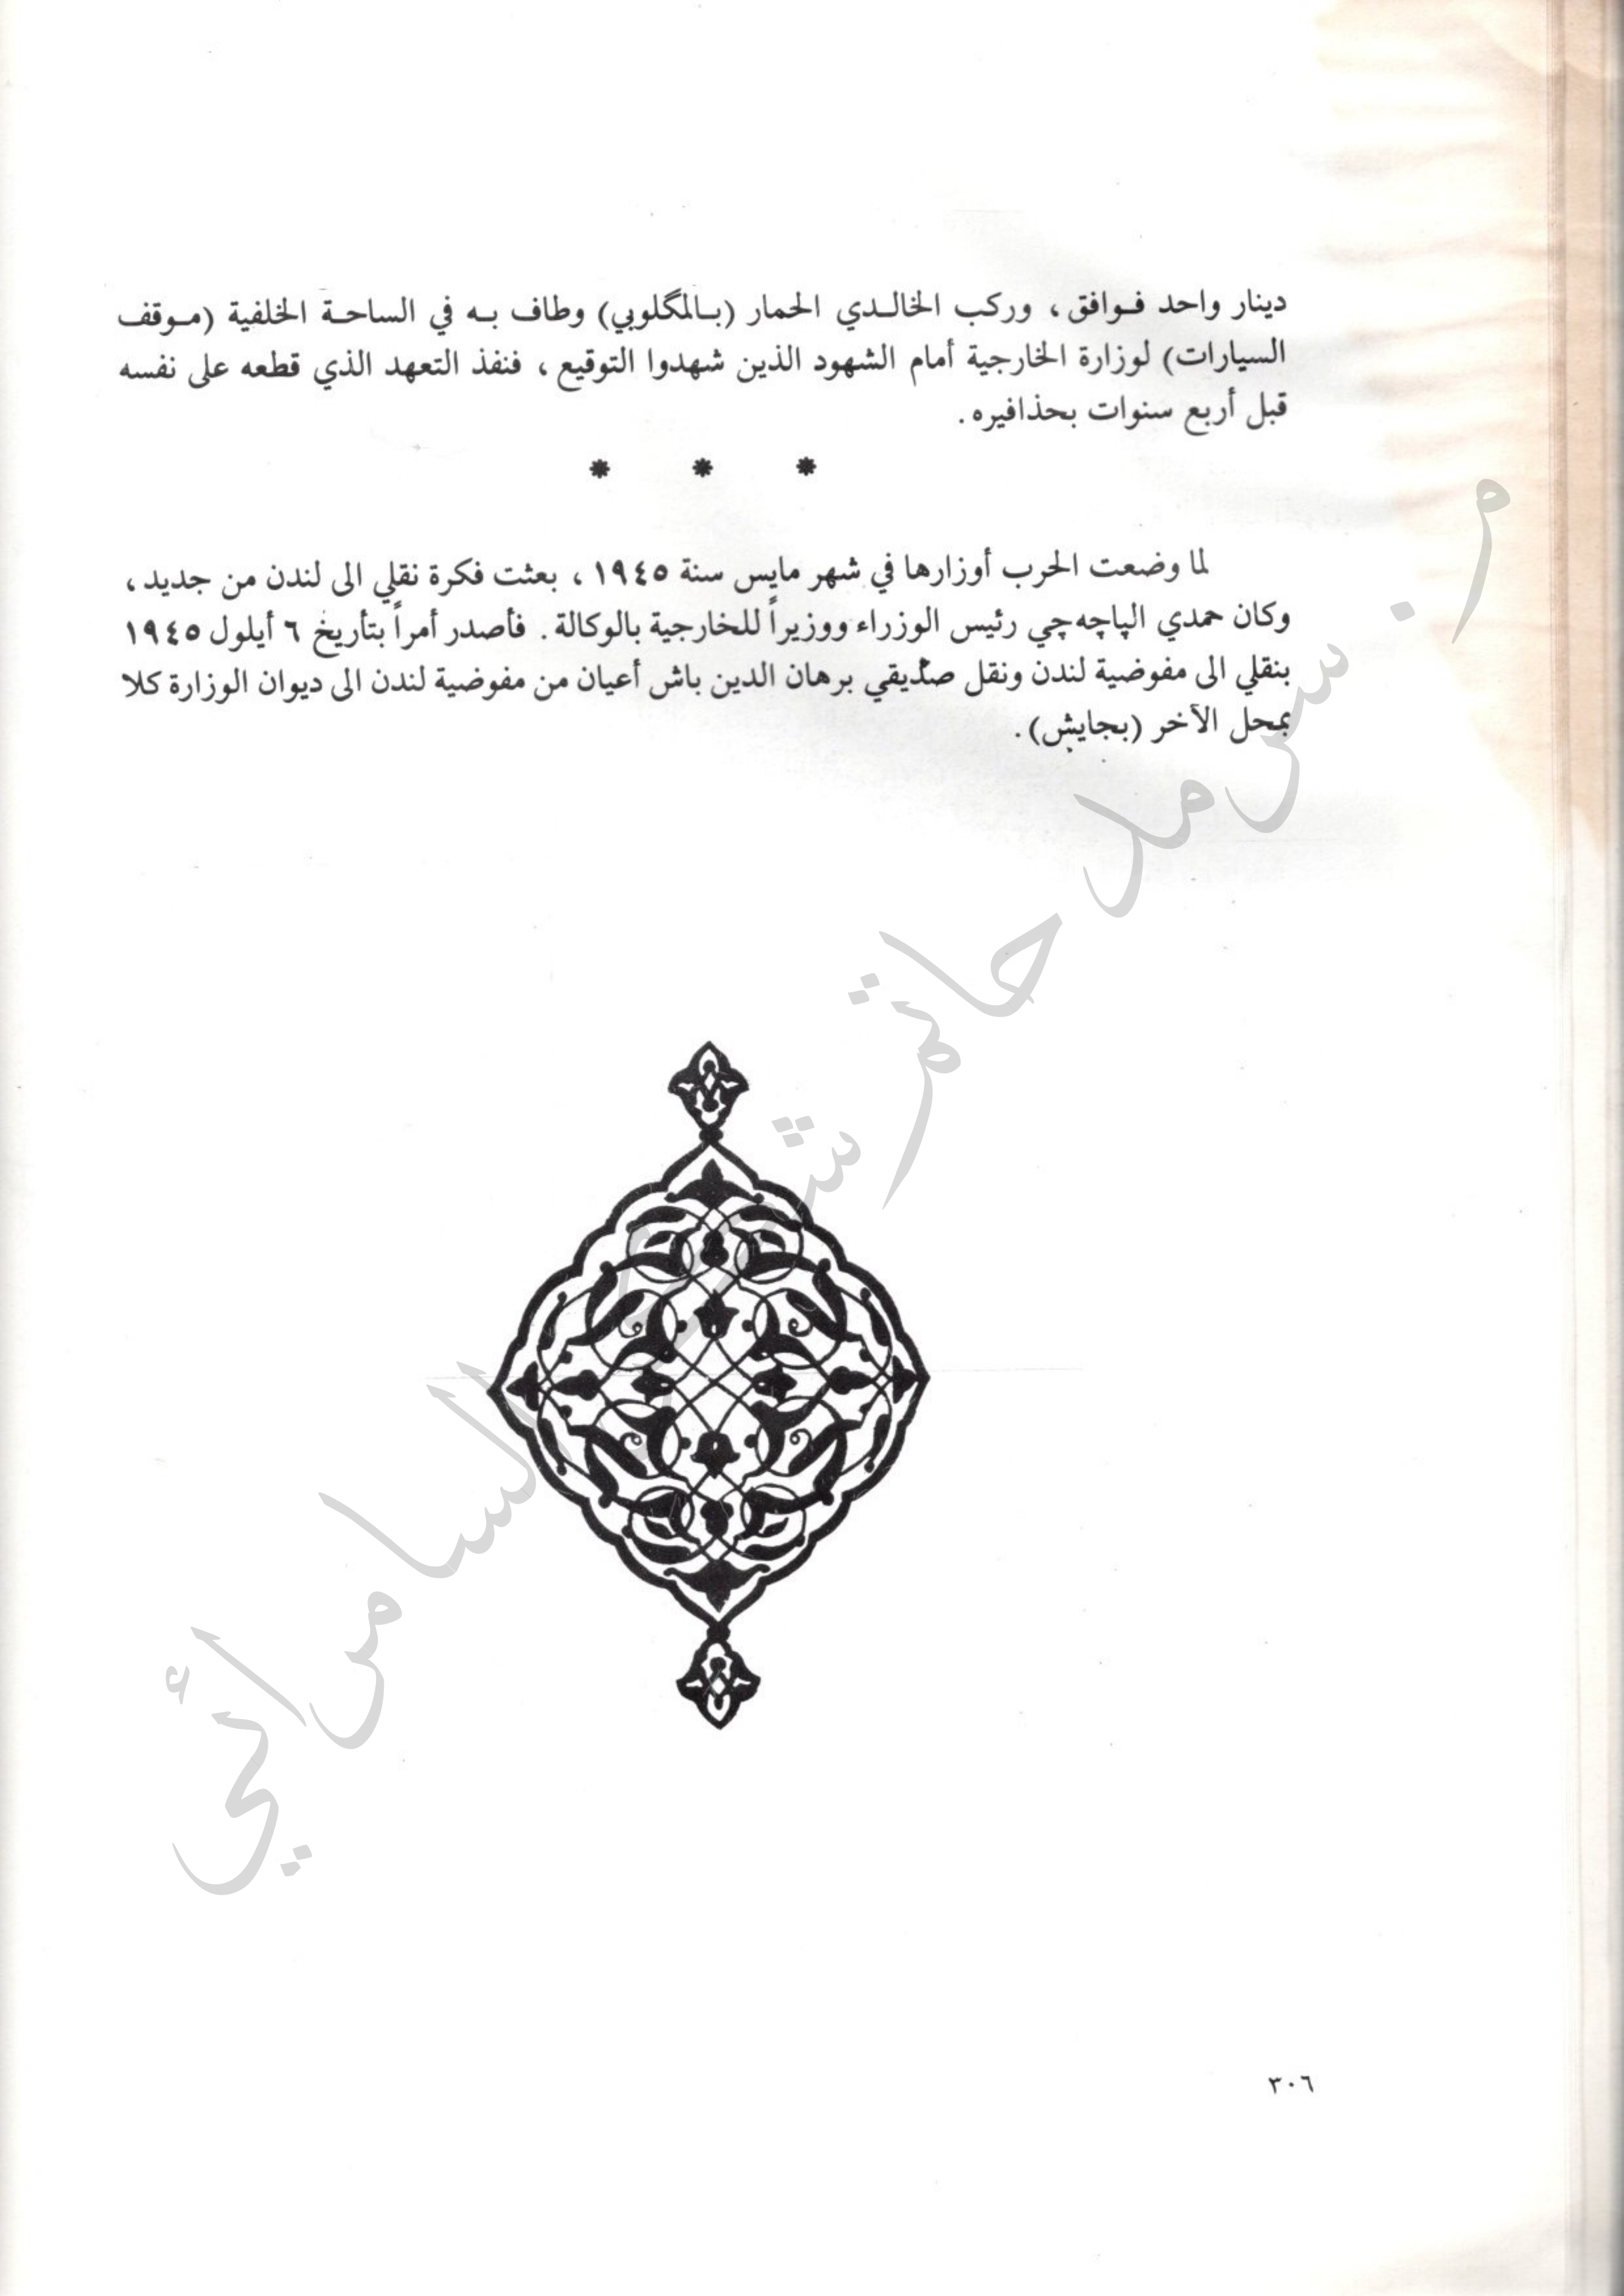 دينار واحد فوافق، وركب الخالدي الحمار (بالمگلوبي) وطاف به في الساحة الخلفية (موقف
السيارات) لوزارة الخارجية أمام الشهود الذين شهدوا التوقيع، فنفذ التعهد الذي قطعه على نفسه
قبل أربع سنوات بحذافيره.
* * *
لما وضعت الحرب أوزارها في شهر مايس سنة ١٩٤٥، بعثت فكرة نقلي الى لندن من جديد،
وكان حمدي الپاچه چي رئيس الوزراء ووزيراً للخارجية بالوكالة. فأصدر أمراً بتأريخ ٦ أيلول ١٩٤٥
بنقلي الى مفوضية لندن ونقل صديقي برهان الدين باش أعيان من مفوضية لندن الى ديوان الوزارة كلا
بمحل الآخر (بجايش).
م. سرمد حاتم شكر السامرائي
٣٠٦